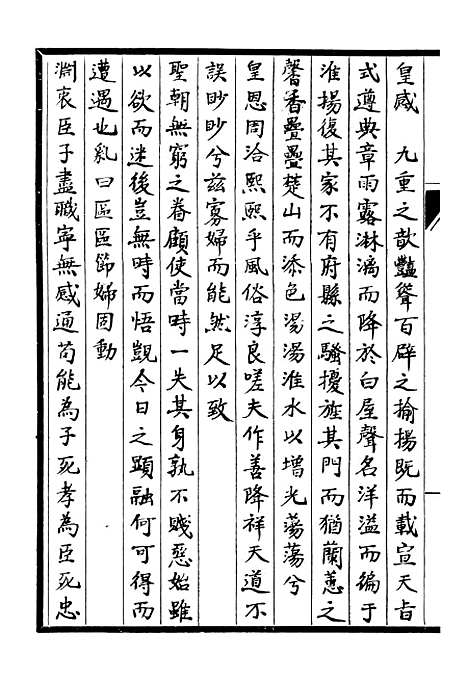 皇咸　九重之歆豔聳百辟之揄揚既而載宣天旨
式遵典章雨露淋漓而降於白屋聲名洋溢而徧于
淮揚復其家不有府縣之騷擾旌其門而猶蘭蕙之
馨香疊疊楚山而添色湯湯淮水以增光蕩蕩兮
皇恩周洽熙熙乎風俗淳良嗟夫作善降祥天道不
誤眇眇兮茲寡婦而能然足以致
聖朝無窮之眷顧使當時一失其身孰不賤惡始雖
以欲而迷後豈無時而悟覬今日之顯融何可得而
遭遇也亂曰區區節婦因動
淵衷臣子盡職寧無感通苟能為子死孝為臣死忠